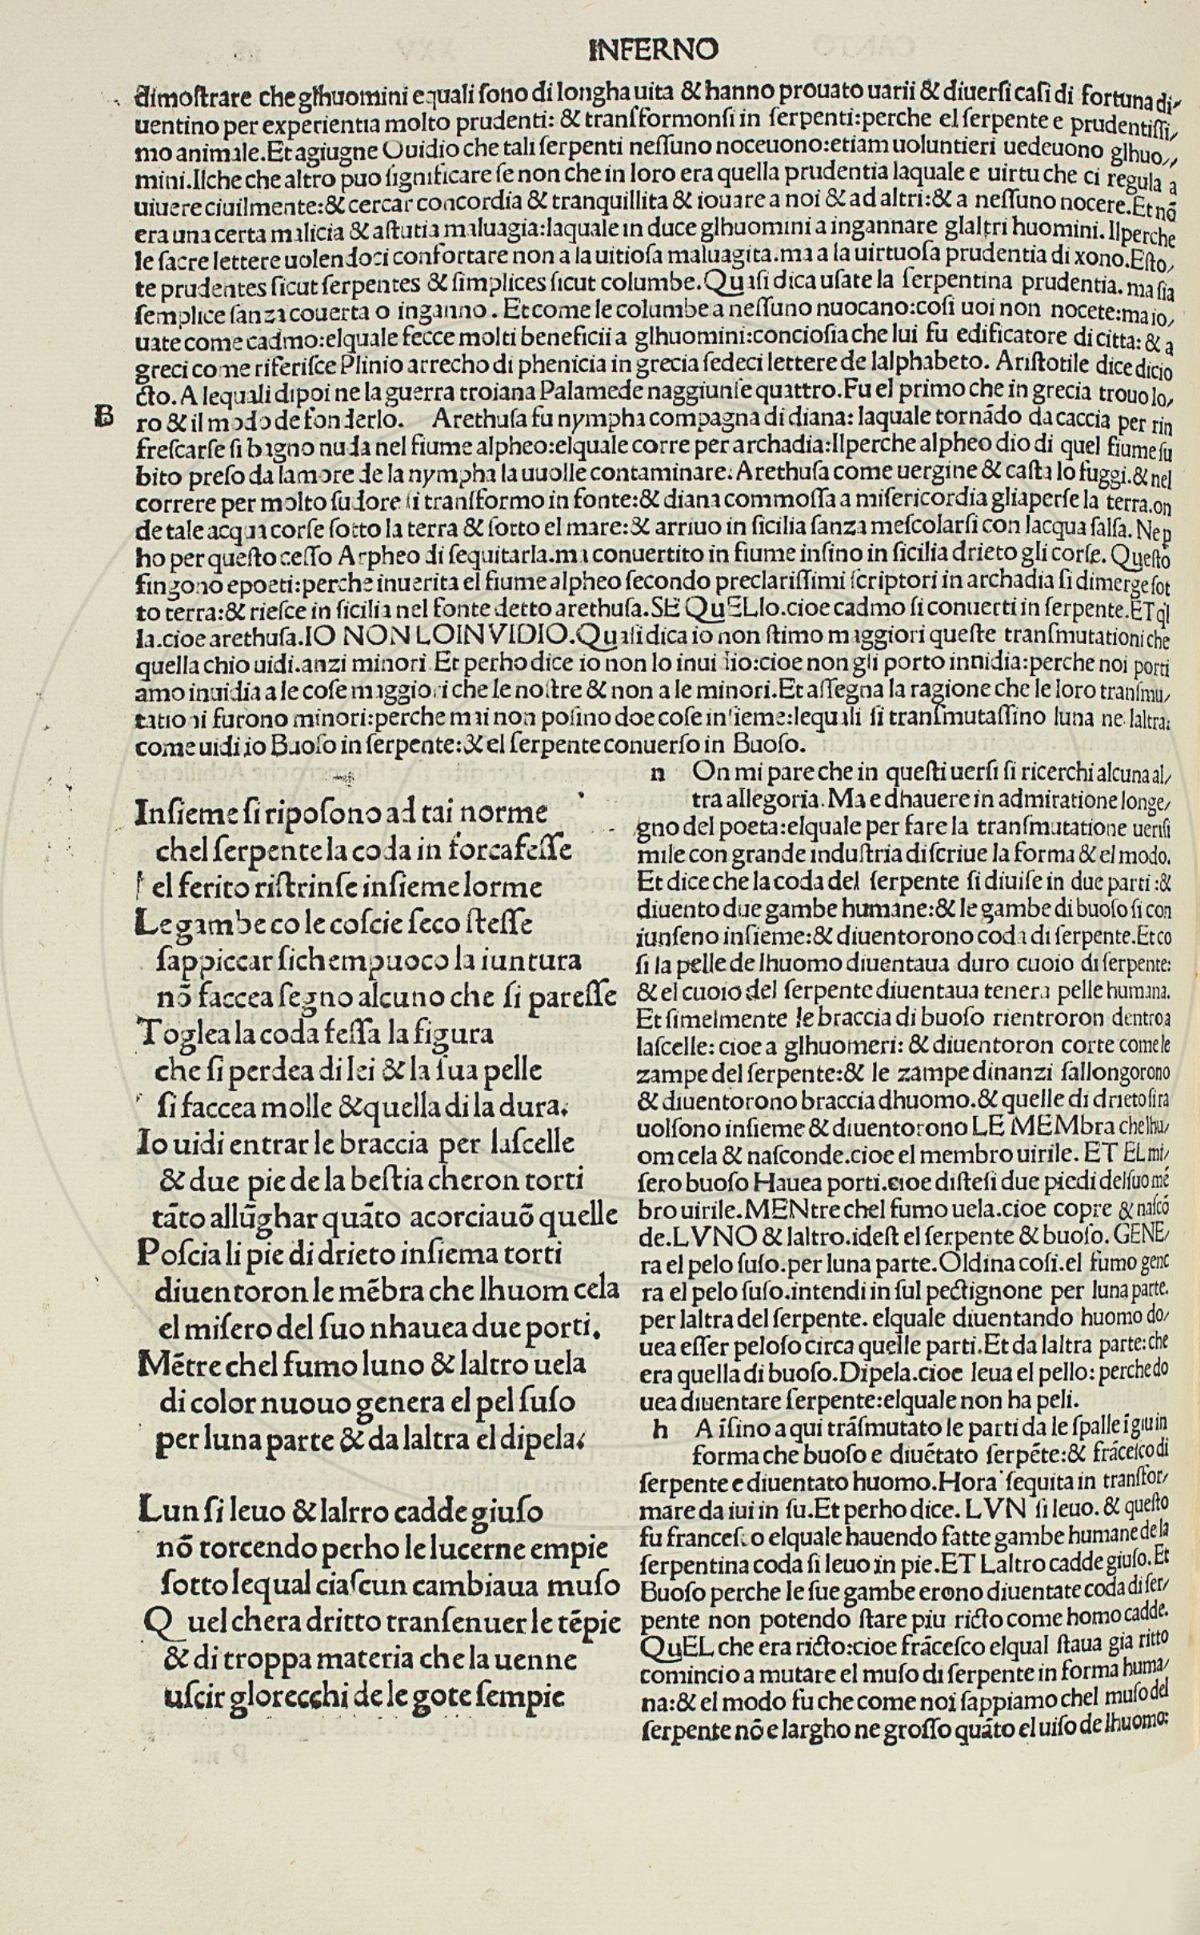 INFERNO
dimoſtrare che glhuomini equali ſono di longha uita & hanno prouato uarii & diuerſi caſi di fortuna di/
uentino per experientia molto prudenti: & tranſformonſi in ſerpenti:perche el ſerpente e prudentiſſi/
mo animale.Et agiugne Ouidio che tali ſerpenti neſſuno noceuono:etiam uoluntieri uedeuono glhuo/
mini.Ilche che altro puo ſignificare ſe non che in loro era quella prudentia laquale e uirtu che ci regula a
uiuere ciuilmente:& cercar concordia & tranquillita & iouare a noi & ad altri:& a neſſuno nocere.Et nō
era una certa malicia & aſtutia maluagia:laquale in duce glhuomini a ingannare glaltri huomini. Ilperche
le ſacre lettere uolendoci confortare non a la uitioſa maluagita.ma a la uirtuoſa prudentia di xono.Eſto/
te prudentes ſicut ſerpentes & ſimplices ſicut columbe.Quaſi dica uſate la ſerpentina prudentia. ma ſia
ſemplice ſanza couerta o inganno. Et come le columbe a neſſuno nuocano:coſi uoi non nocete:ma io/
uate come cadmo:elquale fecce molti beneficii a glhuomini:concioſia che lui fu edificatore di citta: & a
greci come riferiſce Plinio arrecho di phenicia in grecia ſedeci lettere de lalphabeto. Ariſtotile dice dicio
cto. A lequali dipoi ne la guerra troiana Palamede naggiunſe quattro. Fu el primo che in grecia trouo lo/
B ro & il modo de fonderlo. Arethuſa fu nympha compagna di diana: laquale tornādo da caccia per rin
freſcarſe ſi bagno nuda nel fiume alpheo:elquale corre per archadia:Ilperche alpheo dio di quel fiume ſu
bito preſo da lamore de la nympha la uuolle contaminare. Arethuſa come uergine & caſta lo fuggi.& nel
correre per molto ſudore ſi tranſformo in fonte:& diana commoſſa a miſericordia gliaperſe la terra.on
de tale acqua corſe ſotto la terra & ſotto el mare:& arriuo in ſicilia ſanza meſcolarſi con lacqua ſalſa. Ne p
ho per queſto ceſſo Arpheo di ſequitarla.ma conuertito in fiume inſino in ſicilia drieto gli corſe. Queſto
fingono epoeti:perche inuerita el fiume alpheo ſecondo preclariſſimi ſcriptori in archadia ſi dimerge ſot
to terra:& rieſce in ſicilia nel fonte detto arethuſa. SE QuELlo.cioe cadmo ſi conuerti in ſerpente.ET q̄l
la.cioe arethuſa.IO NON LOINVIDIO.Quaſi dica io non ſtimo maggiori queſte tranſmutationi che
quella chio uidi.anzi minori Et perho dice io non lo inuidio:cioe non gli porto innidia:perche noi porti
amo inuidia a le coſe maggiori che le noſtre & non a le minori.Et aſſegna la ragione che le loro tranſmu/
tationi furono minori:perche mai non poſino doe coſe inſieme:lequali ſi tranſmutaſſino luna ne laltra:
come uidi io Buoſo in ſerpente:& el ſerpente conuerſo in Buoſo.
Inſieme ſi ripoſono ad tai norme
chel ſerpente la coda in forca feſſe
el ferito riſtrinſe inſieme lorme
Le gambe co le coſcie ſeco ſteſſe
ſappiccar ſi chempuoco la iuntura
nō faccea ſegno alcuno che ſi pareſſe
Toglea la coda feſſa la figura
che ſi perdea di lei & la ſua pelle
ſi faccea molle & quella di la dura.
Io uidi entrar le braccia per laſcelle
& due pie de la beſtia cheron torti
tāto allūghar quāto acorciauō quelle
Poſcia li pie di drieto inſiema torti
diuentoron le mēbra che lhuom cela
el miſero del ſuo nhauea due porti.
Mētre chel fumo luno & laltro uela
di color nuouo genera el pel ſuſo
per luna parte & da laltra el dipela.
Lun ſi leuo & lalrro cadde giuſo
nō torcendo perho le lucerne empie
ſotto lequal ciaſcun cambiaua muſo
Quel chera dritto tranſenuer le tēpie
& di troppa materia che la uenne
uſcir glorecchi de le gote ſempie
n On mi pare che in queſti uerſi ſi ricerchi alcuna al/
tra allegoria.Ma e dhauere in admiratione longe/
gno del poeta:elquale per fare la tranſmutatione ueriſi
mile con grande induſtria diſcriue la forma & el modo.
Et dice che la coda del ſerpente ſi diuiſe in due parti:&
diuento due gambe humane:& le gambe di buoſo ſi con
iunſeno inſieme:& diuentorono coda di ſerpente.Et co
ſi la pelle de lhuomo diuentaua duro cuoio di ſerpente:
& el cuoio del ſerpente diuentaua tenera pelle humana.
Et ſimelmente le braccia di buoſo rientroron dentro a
laſcelle: cioe a glhuomeri: & diuentoron corte come le
zampe del ſerpente:& le zampe dinanzi ſallongorono
& diuentorono braccia dhuomo.& quelle di drieto ſi ra
uolſono inſieme & diuentorono LE MEMbra che lhu/
om cela & naſconde.cioe el membro uirile. ET EL mi/
ſero buoſo Hauea porti.cioe diſteſi due piedi del ſuo mē
bro uirile.MENtre chel fumo uela.cioe copre & naſcō
de.LVNO & laltro.ideſt el ſerpente & buoſo. GENE/
ra el pelo ſuſo.per luna parte.Oldina coſi.el fumo gene
ra el pelo ſuſo.intendi in ſul pectignone per luna parte.
per laltra del ſerpente. elquale diuentando huomo do/
uea eſſer peloſo circa quelle parti.Et da laltra parte:che
era quella di buoſo.Dipela.cioe leua el pello: perche do
uea diuentare ſerpente:elquale non ha peli.
h A īſino a qui trāſmutato le parti da le ſpalle ī giu in
forma che buoſo e diuētato ſerpēte:& frāceſco di
ſerpente e diuentato huomo.Hora ſequita in tranſfor/
mare da iui in ſu.Et perho dice. LVN ſi leuo. & queſto
fu franceſco elquale hauendo fatte gambe humane de la
ſerpentina coda ſi leuo in pie.ET Laltro cadde giuſo. Et
Buoſo perche le ſue gambe erono diuentate coda di ſer/
pente non potendo ſtare piu ricto come homo cadde.
QuEL che era ricto:cioe frāceſco elqual ſtaua gia ritto
comincio a mutare el muſo di ſerpente in forma huma/
na:& el modo fu che come noi ſappiamo chel muſo del
ſerpente nō e largho ne groſſo quāto el uiſo de lhuomo: